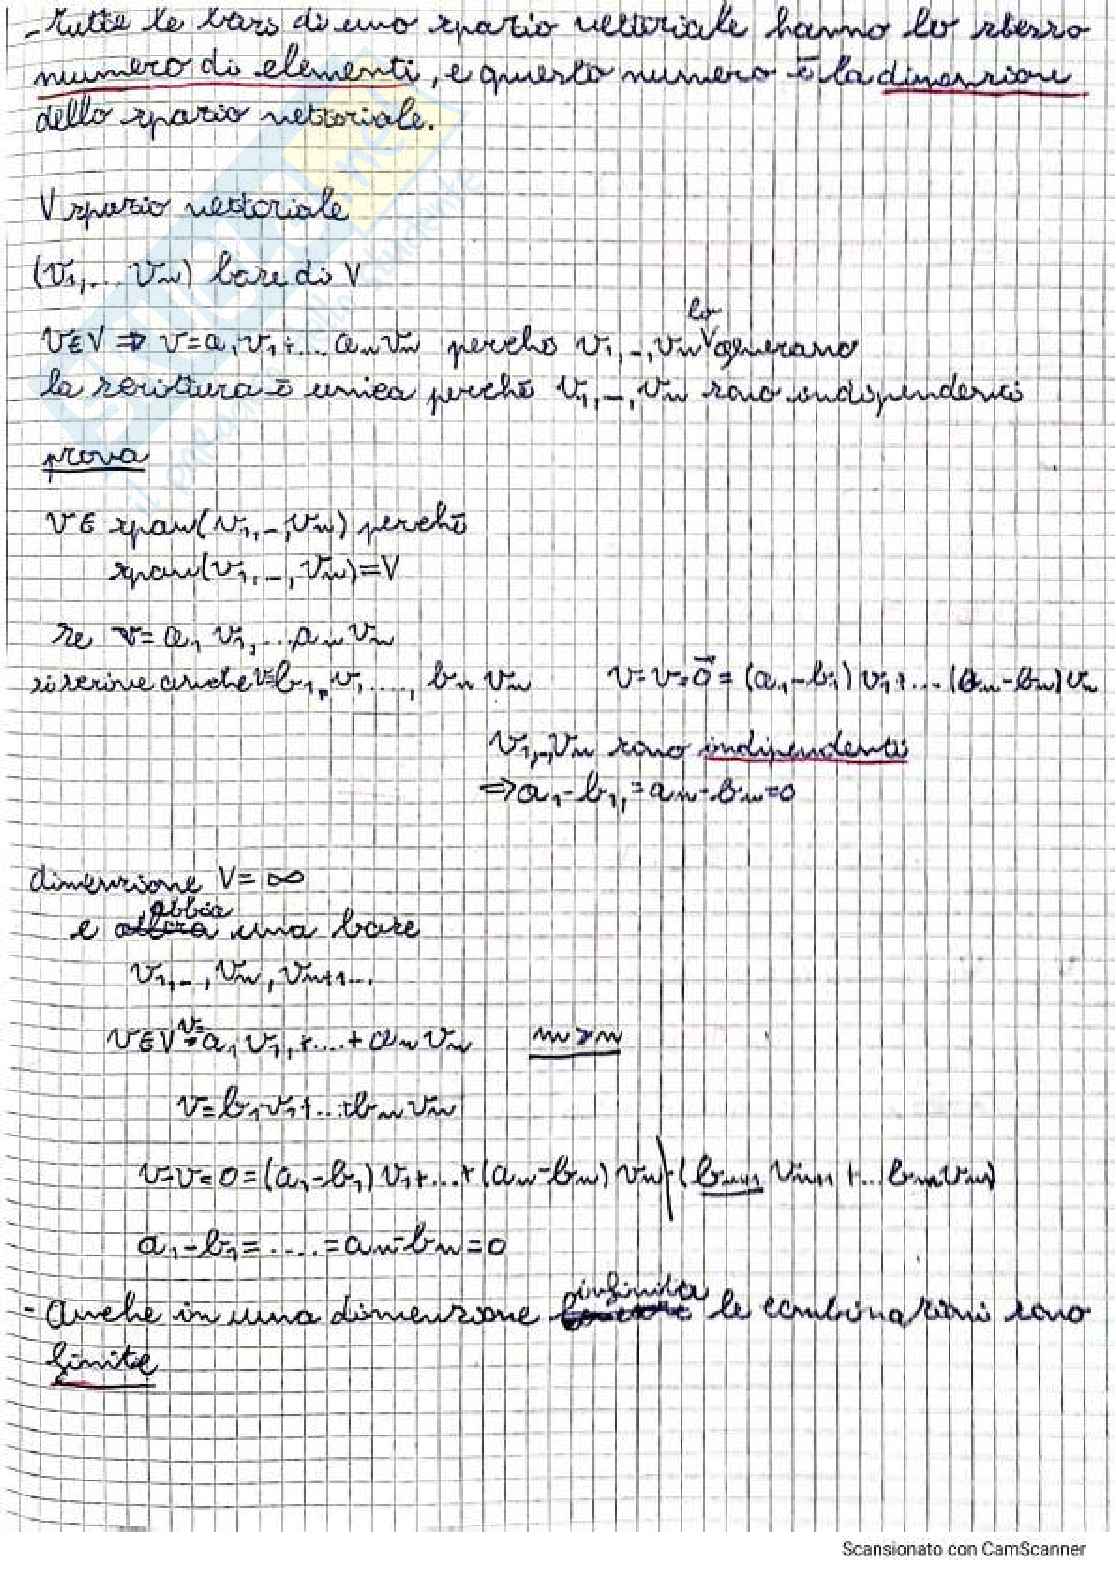 - tutte le basi di uno spazio vettoriale hanno lo stesso
numero di elementi, e questo numero è la dimensione
dello spazio vettoriale.
V spazio vettoriale
(v₁,... vₙ) base di V
lo
v∈V ⇒ v=a₁v₁+... aₙvₙ perchè v₁,-,vₙ generano
la scrittura è unica perchè v₁,-,vₙ sono indipendenti
prova
v∈ span(v₁,-,vₙ) perchè
span(v₁,-,vₙ)=V
se v=a₁ v₁,...aₙ vₙ
si scrive anche v=b₁,v₁,...., bₙ vₙ v-v=0⃗=(a₁-b₁)v₁+...(aₙ-bₙ)vₙ
v₁,-,vₙ sono indipendenti
⇒a₁-b₁,=aₙ-bₙ=0
dimensione V=∞
e abbia una base
v₁,-,vₙ,vₙ₊₁...
v∈V v=a₁v₁,+....+aₙvₙ m>n
v=b₁v₁+...+bₘvₘ
v-v=0=(a₁-b₁)v₁+...+(aₙ-bₙ)vₙ)-(bₙ₊₁ vₙ₊₁+...bₘvₘ)
a₁-b₁=.....=aₙ-bₙ=0
- Anche in una dimensione infinita le combinazioni sono
finite
Scansionato con CamScanner